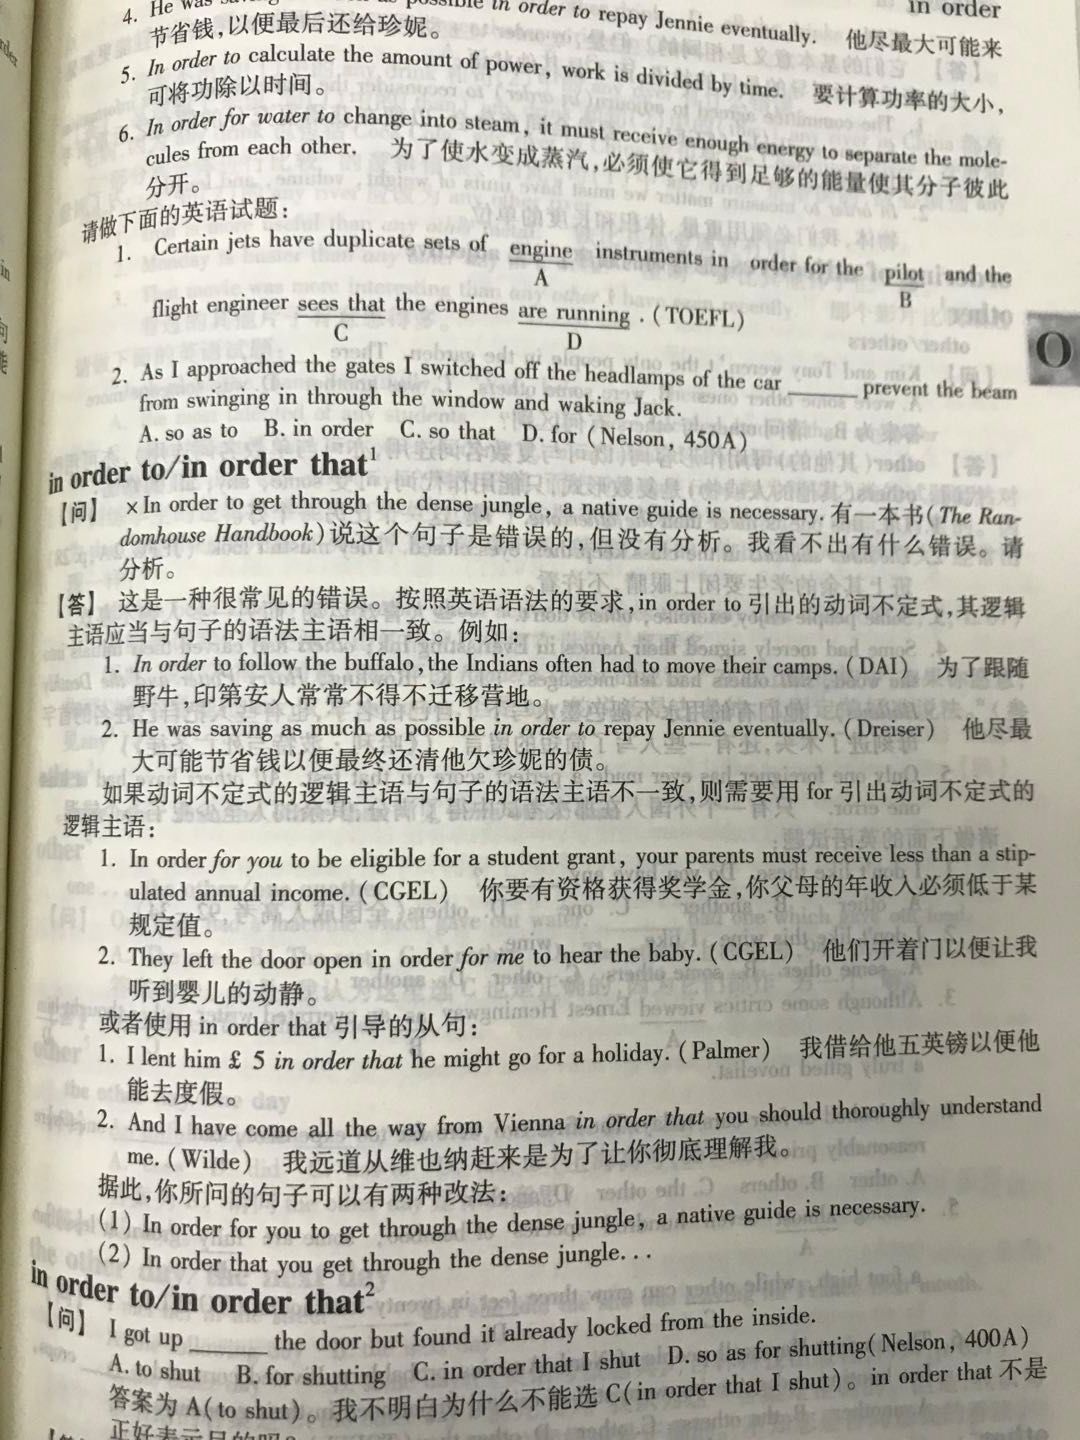 in order
4. He was saving as much as possible in order to repay Jennie eventually. 他尽最大可能来
节省钱,以便最后还给珍妮。
5. In order to calculate the amount of power, work is divided by time. 要计算功率的大小,
可将功除以时间。
6. In order for water to change into steam, it must receive enough energy to separate the mole-
cules from each other. 为了使水变成蒸汽,必须使它得到足够的能量使其分子彼此
分开。
请做下面的英语试题:
1. Certain jets have duplicate sets of engine instruments in order for the pilot and the
A B
flight engineer sees that the engines are running . (TOEFL)
C D
2. As I approached the gates I switched off the headlamps of the car ______ prevent the beam
from swinging in through the window and waking Jack.
A. so as to B. in order C. so that D. for (Nelson, 450A)
O
in order to/in order that1
【问】 ×In order to get through the dense jungle, a native guide is necessary. 有一本书(The Ran-
domhouse Handbook)说这个句子是错误的,但没有分析。我看不出有什么错误。请
分析。
【答】 这是一种很常见的错误。按照英语语法的要求,in order to 引出的动词不定式,其逻辑
主语应当与句子的语法主语相一致。例如:
1. In order to follow the buffalo, the Indians often had to move their camps. (DAI) 为了跟随
野牛,印第安人常常不得不迁移营地。
2. He was saving as much as possible in order to repay Jennie eventually. (Dreiser) 他尽最
大可能节省钱以便最终还清他欠珍妮的债。
如果动词不定式的逻辑主语与句子的语法主语不一致,则需要用 for 引出动词不定式的
逻辑主语:
1. In order for you to be eligible for a student grant, your parents must receive less than a stip-
ulated annual income. (CGEL) 你要有资格获得奖学金,你父母的年收入必须低于某
规定值。
2. They left the door open in order for me to hear the baby. (CGEL) 他们开着门以便让我
听到婴儿的动静。
或者使用 in order that 引导的从句:
1. I lent him £ 5 in order that he might go for a holiday. (Palmer) 我借给他五英镑以便他
能去度假。
2. And I have come all the way from Vienna in order that you should thoroughly understand
me. (Wilde) 我远道从维也纳赶来是为了让你彻底理解我。
据此,你所问的句子可以有两种改法:
(1) In order for you to get through the dense jungle, a native guide is necessary.
(2) In order that you get through the dense jungle...
in order to/in order that2
【问】 I got up ______ the door but found it already locked from the inside.
A. to shut B. for shutting C. in order that I shut D. so as for shutting(Nelson, 400A)
答案为 A(to shut)。我不明白为什么不能选 C(in order that I shut)。in order that 不是
正好表示目的吗?